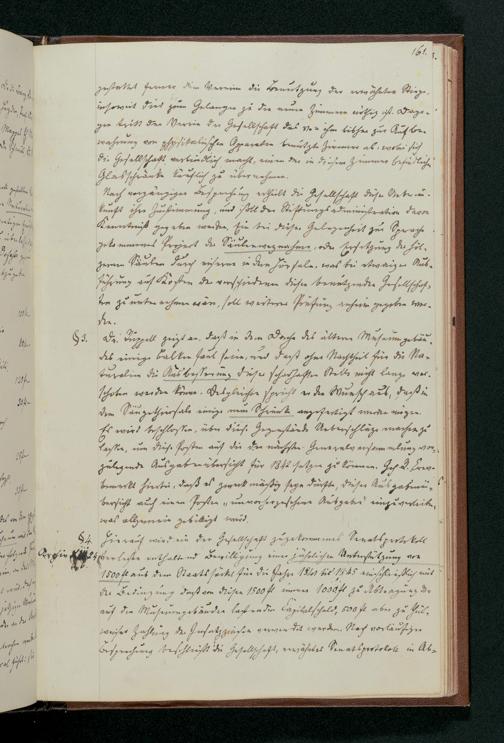 161.
gestattet ferner dem Verein die Benutzung der erwähnten Stiege
insoweit dies zum Gelangen zu den neuen Zimmern nöthig ist. Dage-
gen tritt der Verein der Gesellschaft das von ihm bisher zur Aufbe-
wahrung von physikalischen Apparaten benutzte Zimmer ab, wobei sich
die Gesellschaft verbindlich macht, einen der in diesem Zimmer befindlichen
Glasschränke käuflich zu übernehmen.
Nach vorgängiger Besprechung ertheilt die Gesellschaft dieser Ueberein-
kunft ihre Zustimmung, und soll der Stiftungsadministration davon
Kenntniß gegeben werden. Ein bei dieser Gelegenheit zur Sprache
gekommenes Project der Säulenwegnahme, oder Ersetzung der höl-
zernen Säulen durch eiserne in dem Hörsale, was bei etwaiger Aus-
führung auf Kosten der verschiedenen diesen benutzenden Gesellschaf-
ten zu unternehmen wäre, soll weiterer Prüfung anheim gegeben wer-
den.
§3. Dr. Rüppell zeigt an, daß in dem Dache des ältern Museumsgebäu-
des einige Balken faul seien, und daß ohne Nachtheil für die Na-
turalien die Ausbesserung dieser schadhaften Stelle nicht länger ver-
schoben werden könne. Desgleichen spricht er den Wunsch aus, daß in
dem Säugethiersale einige neue Schränke angefertigt werden mögen.
Es wird beschlossen, über diese Gegenstände Ueberschläge machen zu
lassen, um diese Posten auf die der nächsten Generalversammlung vor-
zulegende Ausgabenübersicht für 1842 setzen zu können.
bemerkt hierbei, daß es zweckmäßig seyn dürfte, dieser Ausgabenü-
bersicht auch einen Posten „unvorhergesehene Ausgaben" einzuverleiben,
was allgemein gebilligt wird.
§4. Hierauf wird ein der Gesellschaft zugekommenes Senatsprotokoll
verlesen enthaltend Bewilligung einer jährlichen Unterstützung von
1500 fl aus dem Staatsärar für die Jahre 1841 bis 1845 einschließlich mit
der Bedingung daß von diesen 1500 fl immer 1000 fl zu Abtragung der
auf den Museumsgebäuden lastenden Capitalschuld, 500 fl aber zu theil-
weiser Zahlung der Zinsen verwendet werden. Nach vorläufiger
Besprechung beschließt die Gesellschaft, erwähntes Senatsprotokoll in Ab-